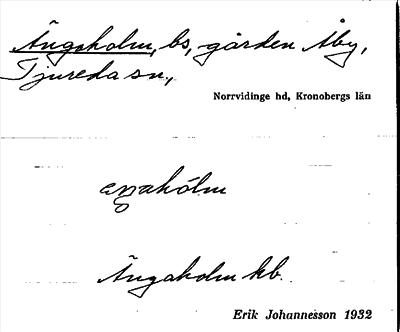 Ängaholm, bs, gården Åby,
Tjureda sn,
Norrvidinge hd, Kronobergs län
Ängaholm kb
Erik Johannesson 1932